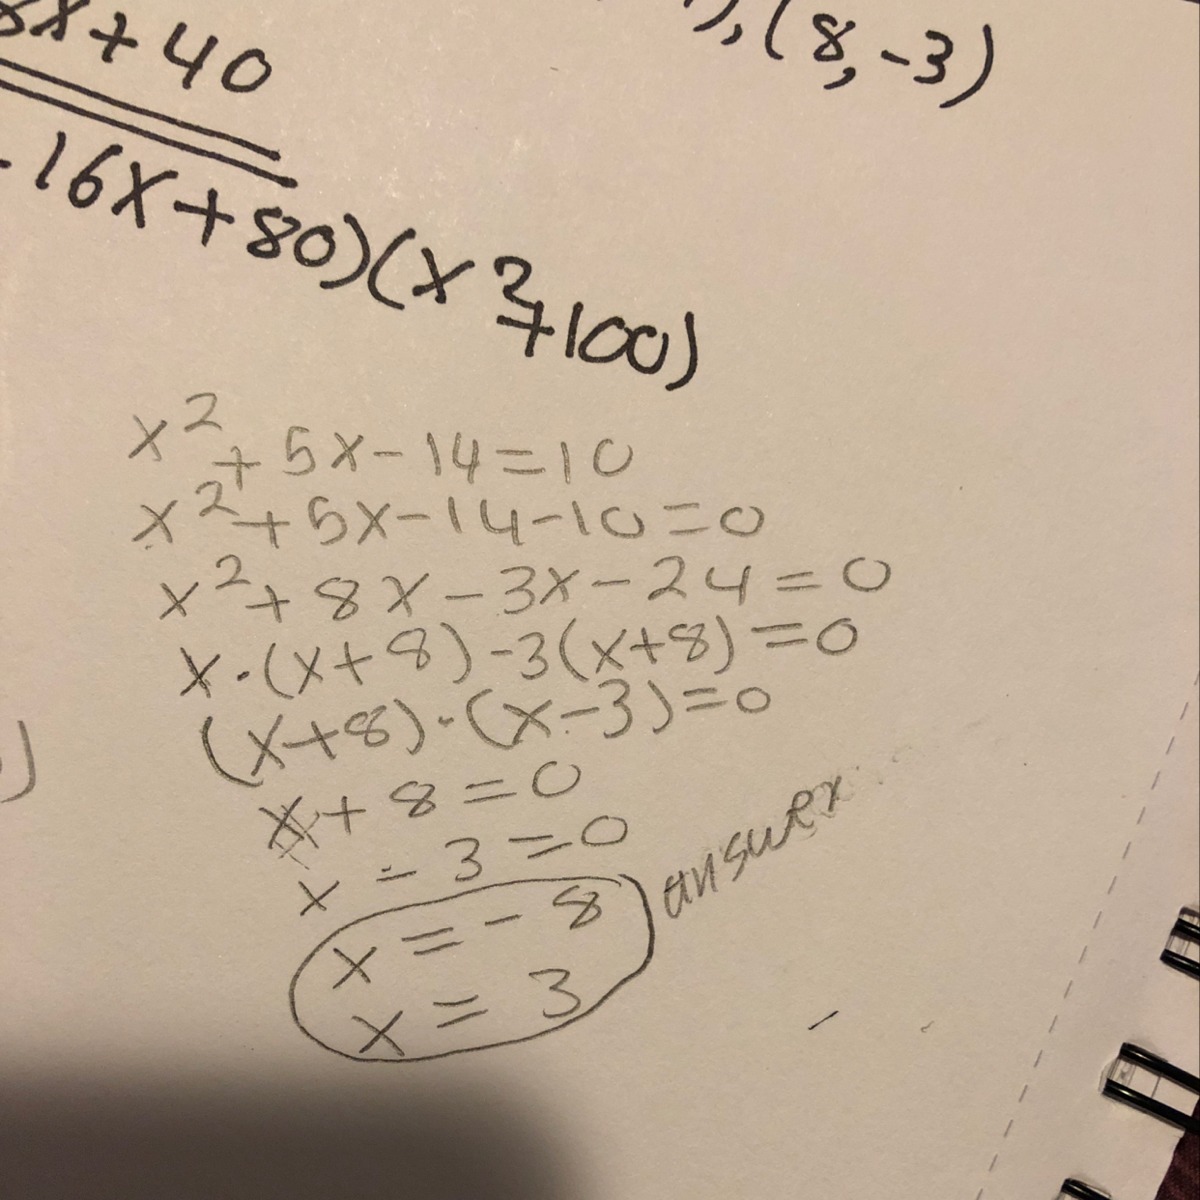 x + 40
), (8, -3)
- 16x + 80)(x² + 100)
x² + 5x - 14 = 10
x² + 5x - 14 - 10 = 0
x² + 8x - 3x - 24 = 0
x · (x + 8) - 3(x + 8) = 0
(x + 8) · (x - 3) = 0
)
x + 8 = 0
x - 3 = 0
x = - 8
x = 3
answer